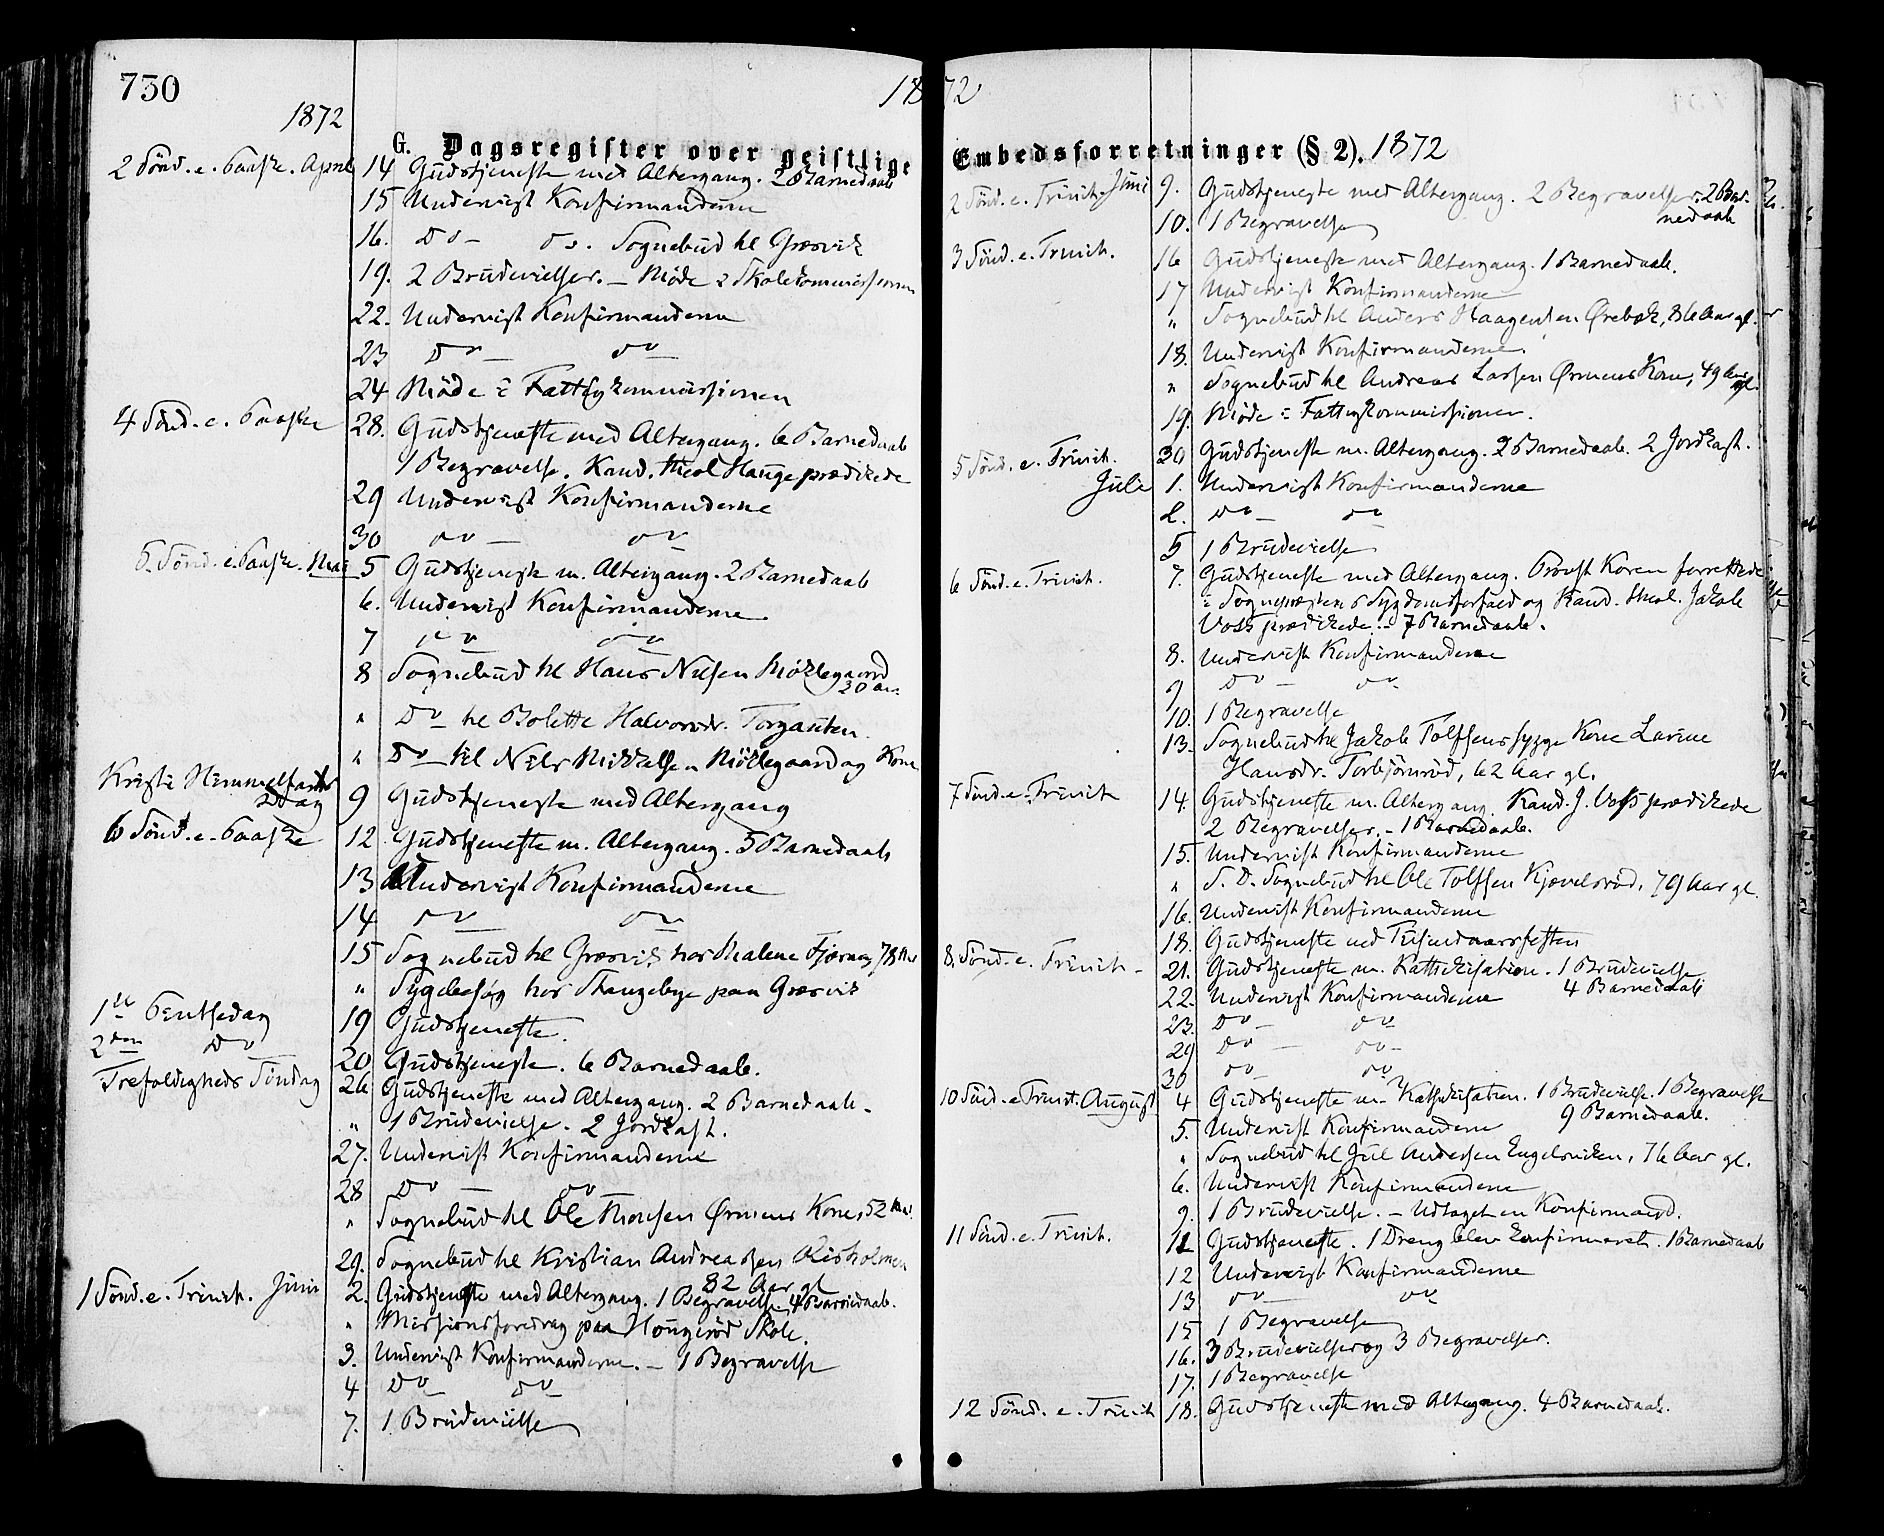 730
1872
1872
G. Dagsregister over geistlige Embedsforretninger (§ 2). 1872
2 Sönd. e. Paaske. April 14 Gudstjeneste med Altergang. 2 Barnedaab
15 Undervist Konfirmanderne
16. Do — Do. Sognebud til Græsvik
19. 2 Brudevielser. — Möde i Skolekommissionen
22. Undervist Konfirmanderne
23 Do — Do
24 Möde i Fattigkommissionen
4 Sönd. e. Paaske 28. Gudstjeneste med Altergang. 6 Barnedaab
1 Begravelse. Kand. theol Hauge prædikede
29 Undervist Konfirmanderne
30 Do — Do
5. Sönd. e. Paaske. Mai 5 Gudstjeneste m. Altergang. 2 Barnedaab
6. Undervist Konfirmanderne
7 Do — Do
8 Sognebud til Hans Nilsen Möklegaard
30 Aar
" Do til Bolette Halvorsdr. Torgauten.
" Do til Nils Mikkelsen Möklegaard og Kone
Kristi Himmelfarts
Dag 9 Gudstjeneste med Altergang
6 Sönd. e. Paaske 12. Gudstjeneste m. Altergang. 5 Barnedaab
13 Undervist Konfirmanderne
14 Do — Do
15 Sognebud til Græsvik hos Malene 78 Aar
" Sygebesög hos paa Græsvik
1ste Pentsedag 19 Gudstjeneste.
2den Do 20 Gudstjeneste. 6 Barnedaab.
Trefoldigheds Söndag 26 Gudstjeneste med Altergang. 2 Barnedaab.
" 1 Brudevielse. 2 Jordkast.
27. Undervist Konfirmanderne
28 Do — Do
" Sognebud til Ole Thoresen Ørmens Kone, 52 Aar.
29. Sognebud til Kristian Andreassen Risholmen
82 Aar gl
1 Sönd. e. Trinit. Juni 2. Gudstjeneste med Altergang. 1 Begravelse. 4 Barnedaab.
" Missionsforedrag paa Hougeröd Skole.
3. Undervist Konfirmanderne. — 1 Begravelse
4 Do — Do
7. 1 Brudevielse
2 Sönd. e. Trinit. Juni 9. Gudstjeneste med Altergang. 2 Begravelser. 2 Bar-
nedaab
10. 1 Begravelse
3 Sönd. e. Trinit. 16 Gudstjeneste med Altergang. 1 Barnedaab.
17 Undervist Konfirmanderne
" Sognebud til Anders Haagensen Ørebæk, 86 Aar gl.
18. Undervist Konfirmanderne.
" Sognebud til Andreas Larsen Ørmens Kone, 49 Aar
gl.
19. Möde i Fattigkommissionen.
5 Sönd. e. Trinit. 30 Gudstjeneste m. Altergang. 2 Barnedaab. 2 Jordkast.
Juli 1. Undervist Konfirmanderne
2. Do — Do
5 1 Brudevielse
6 Sönd. e. Trinit. 7. Gudstjeneste med Altergang. Provst Koren forrettede
i Sognepræstens Sygdomsforfald og Kand. theol. Jakob
Voss prædikede. — 7 Barnedaab.
8. Undervist Konfirmanderne
9 Do — Do
10. 1 Begravelse
13. Sognebud til Jakob Tolfsens syge Kone Lavine
Hansdr. Torbjörnröd, 62 Aar gl.
7 Sönd. e. Trinit 14. Gudstjeneste m. Altergang. Kand. J. Voss prædikede
2 Begravelser. — 1 Barnedaab.
15. Undervist Konfirmanderne
" S. D. Sognebud til Ole Tolfsen Kjævelsröd, 79 Aar gl.
16. Undervist Konfirmanderne
18. Gudstjeneste ved Tusindaarsfesten
8. Sönd. e. Trinit. 21. Gudstjeneste m. Kathekisation. 1 Brudevielse
4 Barnedaab
22. Undervist Konfirmanderne
23. Do — Do
29 Do — Do
30 Do — Do
10 Sönd. e. Trinit. August 4 Gudstjeneste m. Kathekisation. 1 Brudevielse. 1 Begravelse
9 Barnedaab.
5. Undervist Konfirmanderne
" Sognebud til Juel Andersen Engelsviken, 76 Aar gl.
6. Undervist Konfirmanderne
9. 1 Brudevielse. — Udtaget en Konfirmand.
11 Sönd. e. Trinit. 11 Gudstjeneste. 1 Dreng blev konfirmeret. 1 Barnedaab
12 Undervist Konfirmanderne
13 Do — Do
15 1 Begravelse
16. 3 Brudevielser og 3 Begravelser.
17. 1 Begravelse
12 Sönd. e. Trinit 18. Gudstjeneste med Altergang. 4 Barnedaab.